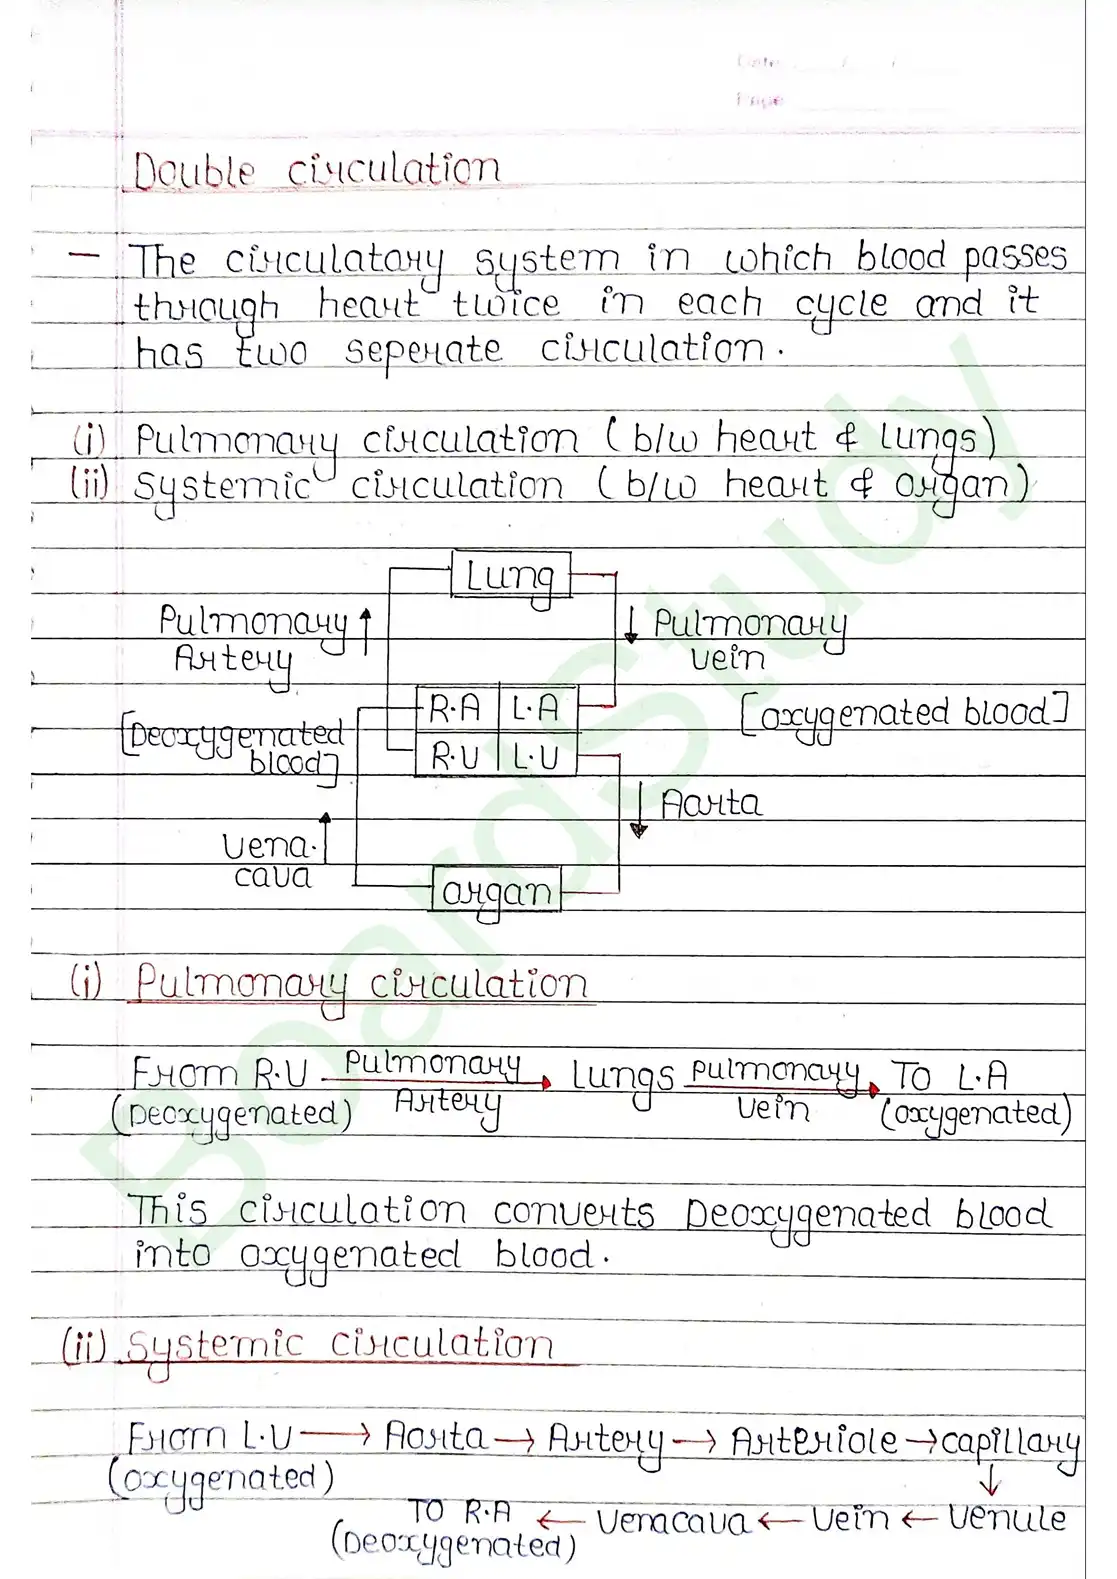 Date
Page
Double circulation
— The circulatory system in which blood passes
through heart twice in each cycle and it
has two seperate circulation.
(i) Pulmonary circulation (b/w heart & Lungs)
(ii) Systemic circulation (b/w heart & organ)
Lung
Pulmonary ↑ ↓ Pulmonary
Artery vein
R.A L.A [oxygenated blood]
[Deoxygenated
blood] R.V L.V
↓ Aorta
Vena. ↑
cava
organ
(i) Pulmonary circulation
From R.V Pulmonary Artery → Lungs Pulmonary Vein → To L.A
(Deoxygenated) (oxygenated)
This circulation converts Deoxygenated blood
into oxygenated blood.
(ii) Systemic circulation
From L.V → Aorta → Artery → Arteriole → capillary
(oxygenated) ↓
TO R.A ← Venacava ← Vein ← Venule
(Deoxygenated)
BoardStudy